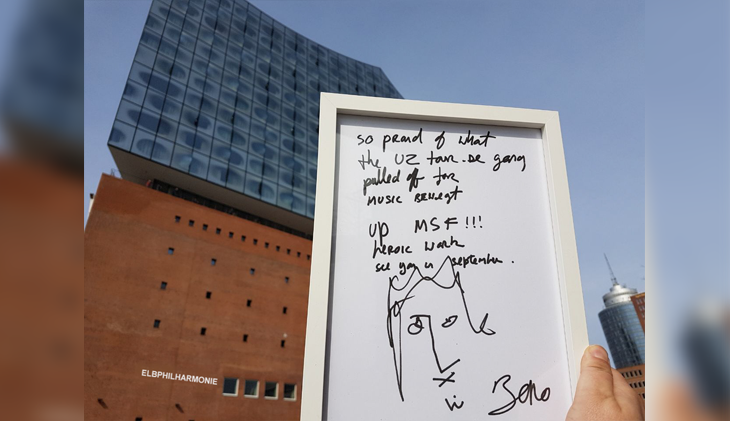 so proud of what
the U2 tour.DE gang
pulled off for
MUSIC BENEFIT
up MSF!!!
heroic work
see you in september.
Bono
ELBPHILHARMONIE